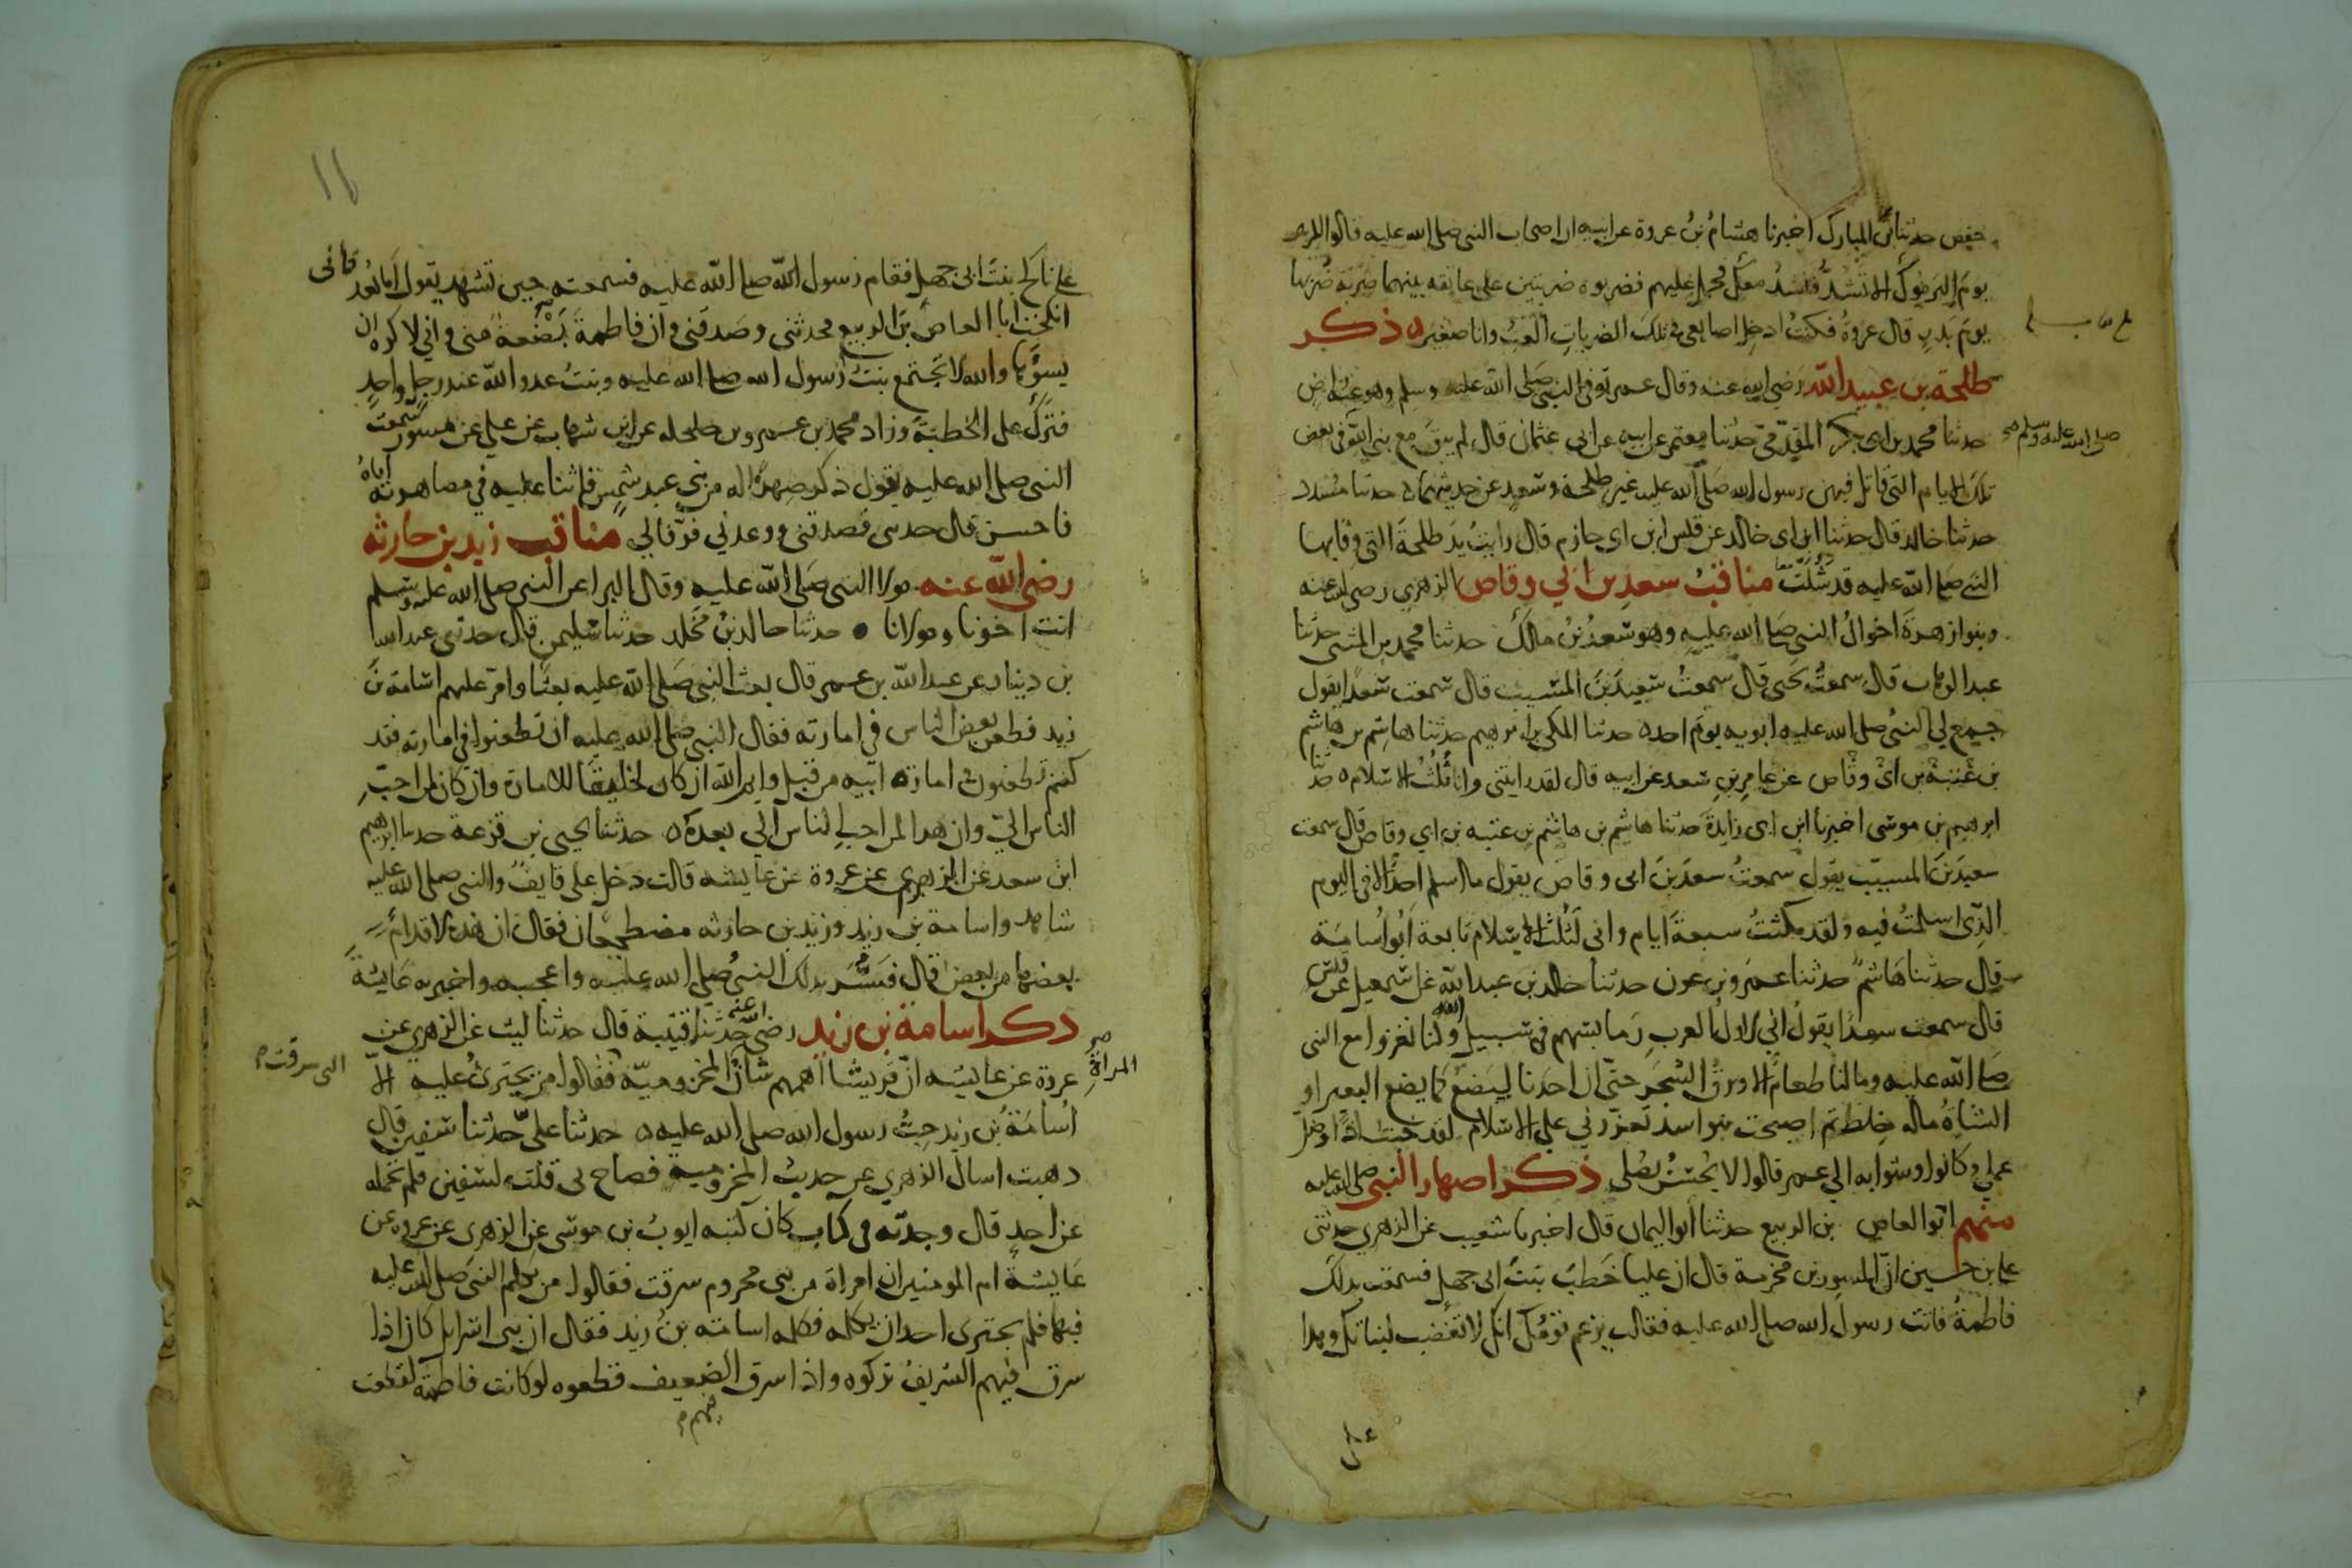 حفص حدثنا ابن المبارك اخبرنا هشام بن عروة عن ابيه ان اصحاب النبي صلى الله عليه قالوا للزبير
يوم اليرموك الا تشد فنشد معك فحمل عليهم فضربوه ضربتين على عاتقه بينهما ضربة ضربها
يوم بدر قال عروة فكنت ادخل اصابعي في تلك الضربات العب وانا صغير ذكر
طلحة بن عبيد الله رضي الله عنه وقال عمر توفي النبي صلى الله عليه وسلم وهو عنه راض
حدثنا محمد بن ابي بكر المقدمي حدثنا معتمر عن ابيه عن ابي عثمان قال لم يبق مع نبي الله في بعض
صلى الله عليه وسلم صح
تلك الايام التي قاتل فيهن رسول الله صلى الله عليه غير طلحة وسعد عن حديثهما حدثنا مسدد
حدثنا خالد قال حدثنا ابن ابي خالد عن قيس ابن ابي حازم قال رايت يد طلحة التي وقا بها
النبي صلى الله عليه قد شلت مناقب سعد بن ابي وقاص الزهري رضي الله عنه
وبنوا زهرة اخوال النبي صلى الله عليه وهو سعد بن مالك حدثنا محمد بن المثنى حدثنا
عبد الوهاب قال سمعت يحيى قال سمعت سعيد بن المسيب قال سمعت سعدا يقول
جمع لي النبي صلى الله عليه ابويه يوم احد حدثنا المكي بن ابرهيم حدثنا هاشم بن هاشم
بن عتبة بن ابي وقاص عن عامر بن سعد عن ابيه قال لقد رايتني وانا ثلث الاسلام حدثنا
ابرهيم بن موسى اخبرنا ابن ابي زايدة حدثنا هاشم بن هاشم بن عتبة بن ابي وقاص قال سمعت
سعيد بن المسيب يقول سمعت سعد بن ابي وقاص يقول ما اسلم احد الا في اليوم
الذي اسلمت فيه ولقد مكثت سبعة ايام واني لثلث الاسلام تابعه ابو اسامة
قال حدثنا هاشم حدثنا عمرو بن عون حدثنا خالد بن عبد الله عن اسمعيل عن قيس
قال سمعت سعدا يقول اني لاول العرب رما بسهم في سبيل الله وكنا نغزوا مع النبي
صلى الله عليه وما لنا طعام الا ورق الشجر حتى ان احدنا ليضع كما يضع البعير او
الشاة ماله خلط ثم اصبحت بنو اسد تعزرني على الاسلام لقد خبت اذا وضل
عملي وكانوا وشوا به الى عمر قالوا لا يحسن يصلي ذكر اصهار النبي صلى الله عليه
منهم ابو العاص بن الربيع حدثنا ابو اليمان قال اخبرنا شعيب عن الزهري حدثني
علي بن حسين ان المسور بن مخرمة قال ان عليا خطب بنت ابي جهل فسمعت بذلك
فاطمة فاتت رسول الله صلى الله عليه فقالت يزعم قومك انك لا تغضب لبناتك وهذا
علي
علي ناكح بنت ابي جهل فقام رسول الله صلى الله عليه فسمعته حين تشهد يقول اما بعد فاني
انكحت ابا العاص بن الربيع فحدثني وصدقني وان فاطمة بضعة مني واني لاكره ان
يسؤها والله لا تجتمع بنت رسول الله صلى الله عليه وبنت عدو الله عند رجل واحد
فترك علي الخطبة وزاد محمد بن عمرو بن حلحله عن ابن شهاب عن علي عن مسور سمعت
النبي صلى الله عليه يقول ذكر صهرا له من بني عبد شمس فاثنا عليه في مصاهرته اياه
فاحسن قال حدثني فصدقني ووعدني فوفا لي مناقب زيد بن حارثه
رضي الله عنه مولا النبي صلى الله عليه وقال البرا عن النبي صلى الله عليه وسلم
انت اخونا ومولانا حدثنا خالد بن مخلد حدثنا سليمن قال حدثني عبد الله
بن دينار عن عبد الله بن عمر قال بعث النبي صلى الله عليه بعثا وامر عليهم اسامة بن
زيد فطعن بعض الناس في امارته فقال النبي صلى الله عليه ان تطعنوا في امارته فقد
كنتم تطعنون في امارة ابيه من قبل وايم الله ان كان لخليقا للامارة وان كان لمن احب
الناس الي وان هذا لمن احب الناس الي بعده حدثنا يحيى بن قزعة حدثنا ابرهيم
ابن سعد عن الزهري عن عروة عن عايشه قالت دخل علي قايف والنبي صلى الله عليه
شاهد واسامة بن زيد وزيد بن حارثه مضطجعان فقال ان هذه الاقدام
بعضها من بعض قال فسر بذلك النبي صلى الله عليه واعجبه واخبر به عايشة
ذكر اسامة بن زيد رضي الله عنه حدثنا قتيبة قال حدثنا ليث عن الزهري عن
عروة عن عايشه ان قريشا اهمهم شان المخزومية فقالوا من يجترئ عليه الا
المراة
التي سرقت
اسامة بن زيد حب رسول الله صلى الله عليه حدثنا علي حدثنا سفين قال
ذهبت اسال الزهري عن حديث المخزومية فصاح بي قلت لسفين فلم تحمله
عن احد قال وجدته في كتاب كان كتبه ايوب بن موسى عن الزهري عن عروة عن
عايشة ام المومنين ان امراة من بني مخزوم سرقت فقالوا من يكلم النبي صلى الله عليه
فيها فلم يجترى احد ان يكلمه فكلمه اسامة بن زيد فقال ان بني اسرايل كان اذا
سرق فيهم الشريف تركوه واذا سرق الضعيف قطعوه لو كانت فاطمة لقطعت
فيهم